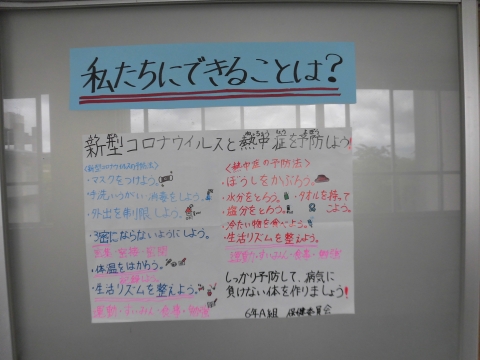 私たちにできることは?
新型コロナウイルスと熱中症を予防しよう!
<新型コロナウイルスの予防法>
・マスクをつけよう。
・手洗いうがい・消毒をしよう。
・外出を制限しよう。
・3密にならないようにしよう。
密集・密接・密閉
・体温をはかろう。
・生活リズムを整えよう。
運動・すいみん・食事・勉強
<熱中症の予防法>
・ぼうしをかぶろう。
・水分をとろう。 ・タオルを持って
・塩分をとろう。 こよう。
・冷たい物を食べよう。
・生活リズムを整えよう。
運動・すいみん・食事・勉強
しっかり予防して、病気に
負けない体を作りましょう!
6年A組 保健委員会